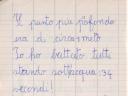 Il punto più profondo
era di circa 1 metro
Io ho battuto tutti
stando sott'acqua 34
secondi!